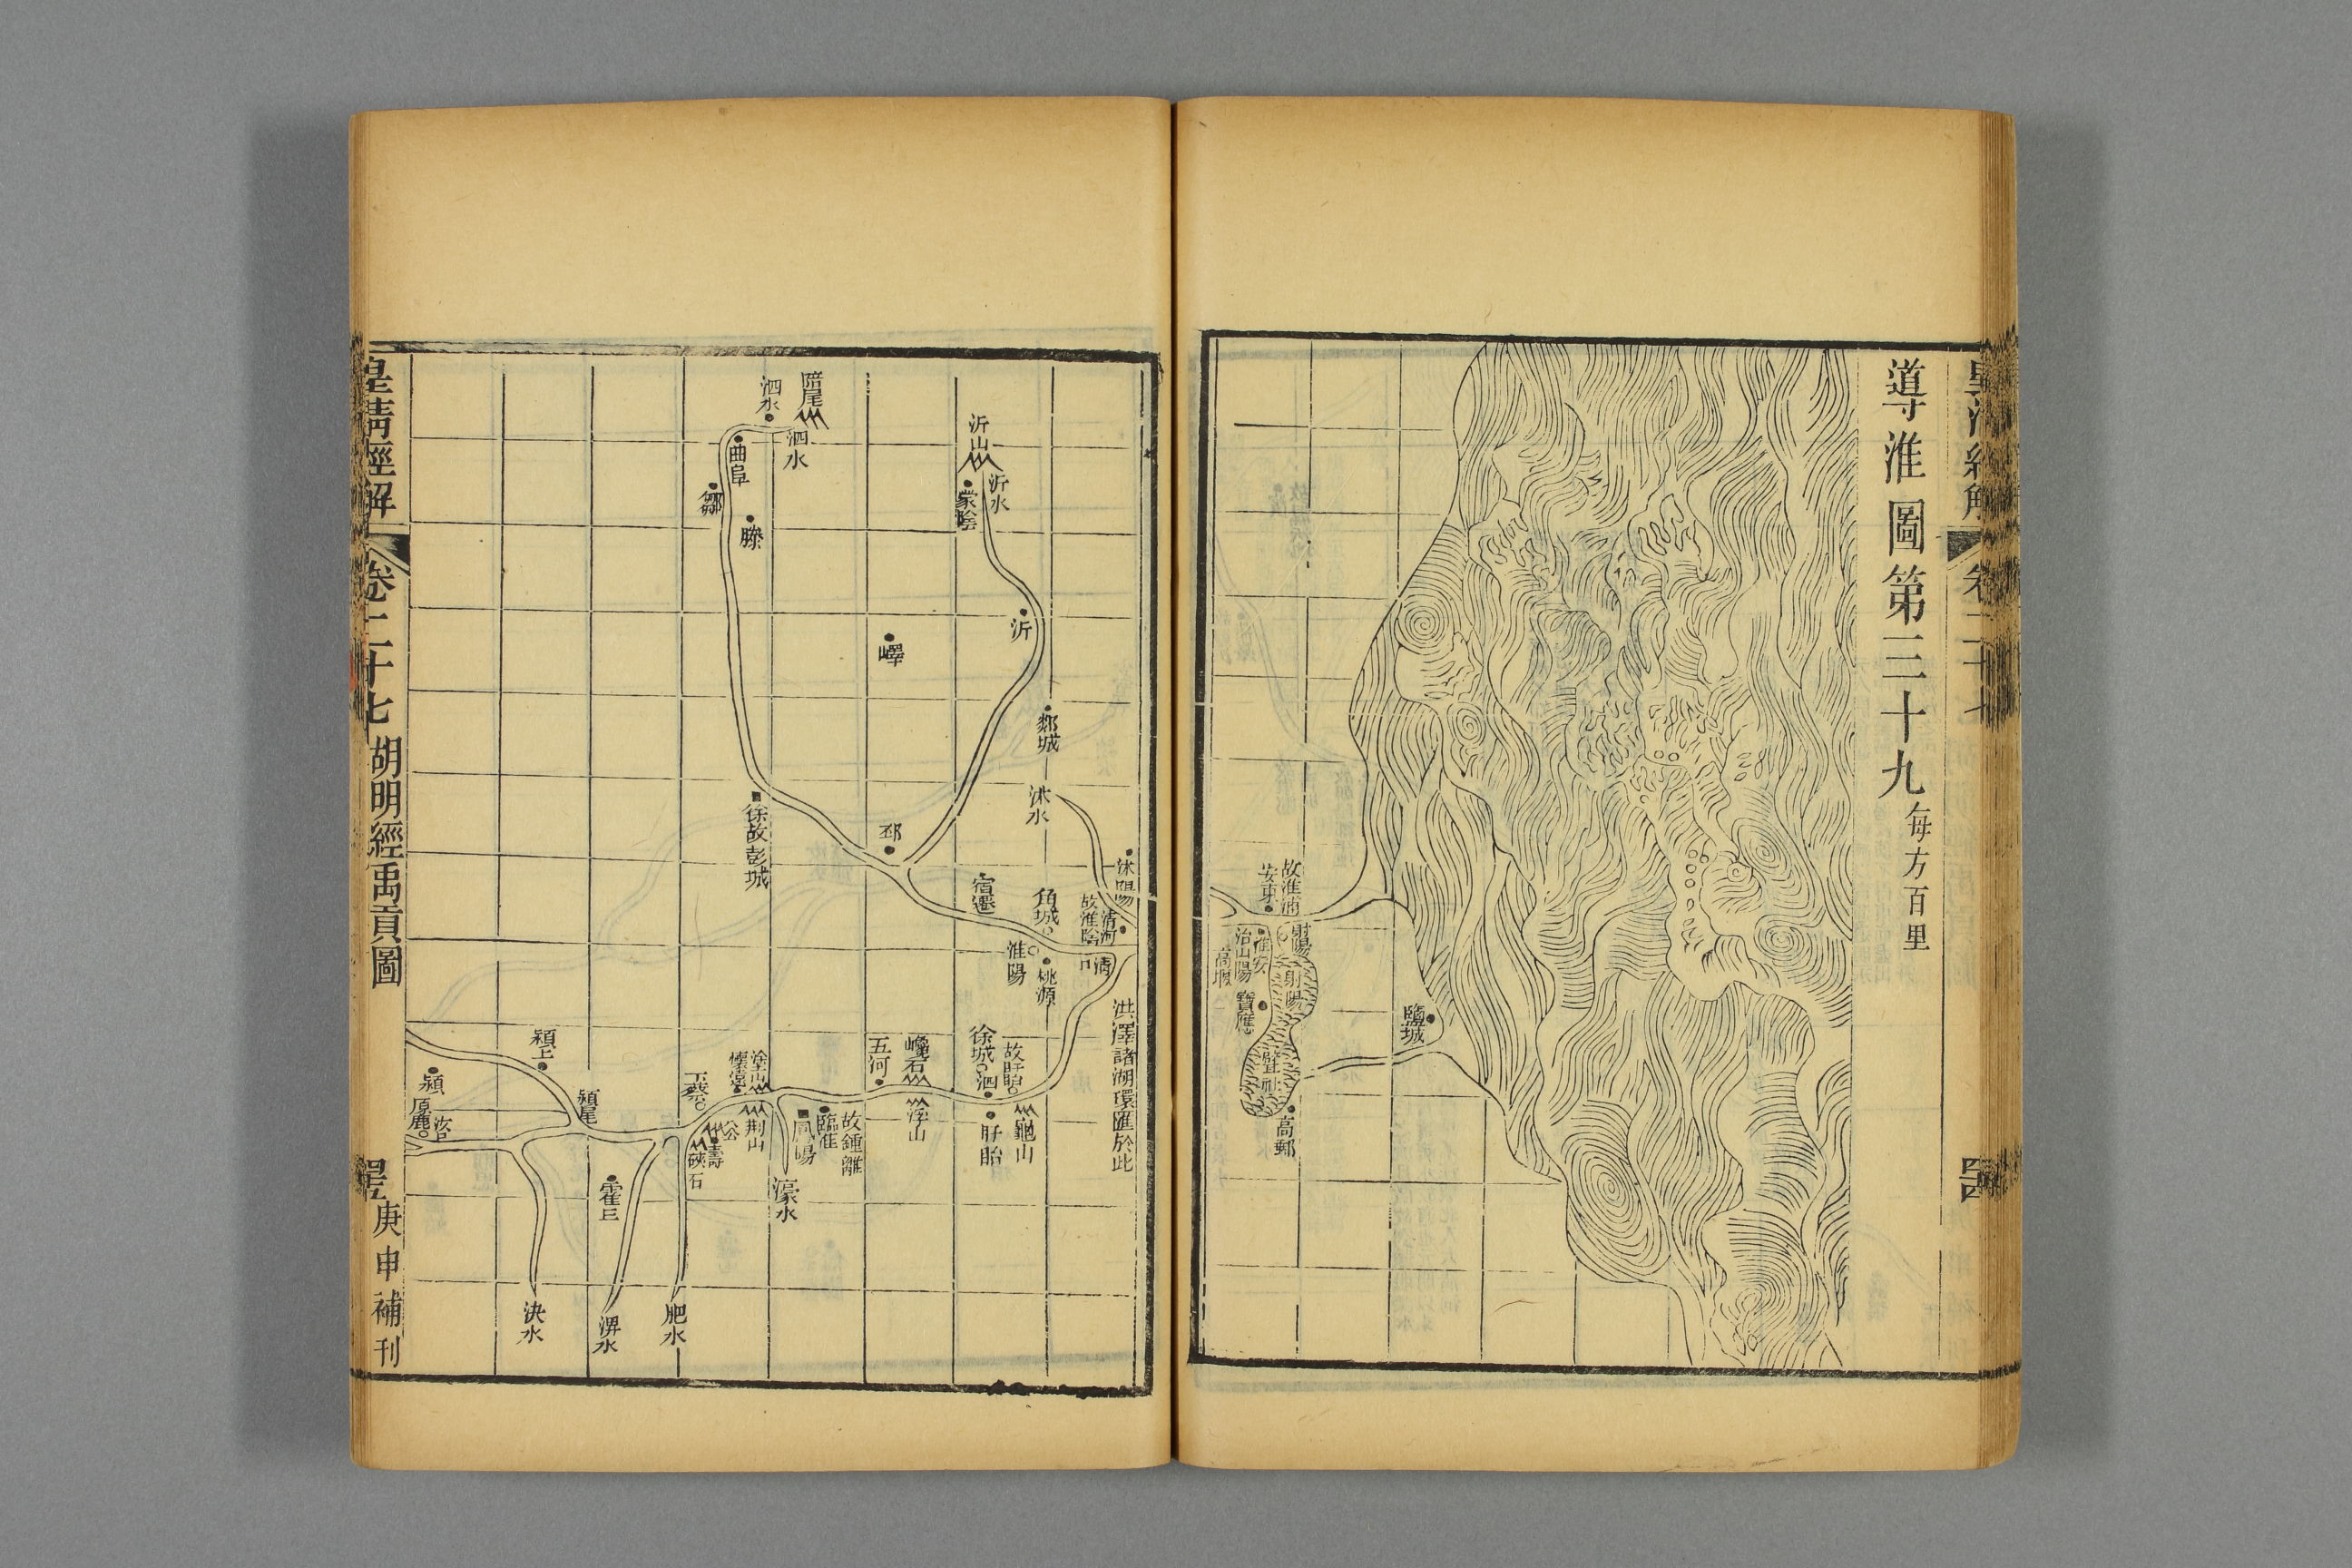 皇清經解
卷二十七
導淮圖第三十九 每方百里
故淮浦
安東
射陽
淮安
治山陽
高堰
射陽
寶應
鹽城
高郵
沭陽
清河
故淮陰
清口
洪澤諸湖環匯於此
郯城
沭水
角城
桃源
淮陽
宿遷
沂山
沂水
蒙陰
沂
嶧
邳
陪尾
泗水
泗水
曲阜
鄒
滕
徐故彭城
故盱眙
龜山
徐城
泗
盱眙
巉石
浮山
五河
故鍾離
臨淮
鳳陽
濠水
塗山
懷遠
荆山
八公
壽
硤石
下蔡
肥水
淠水
霍丘
潁尾
潁上
決水
潁
汝口
原鹿
皇清經解
卷二十七
胡明經禹貢圖
庚申補刊